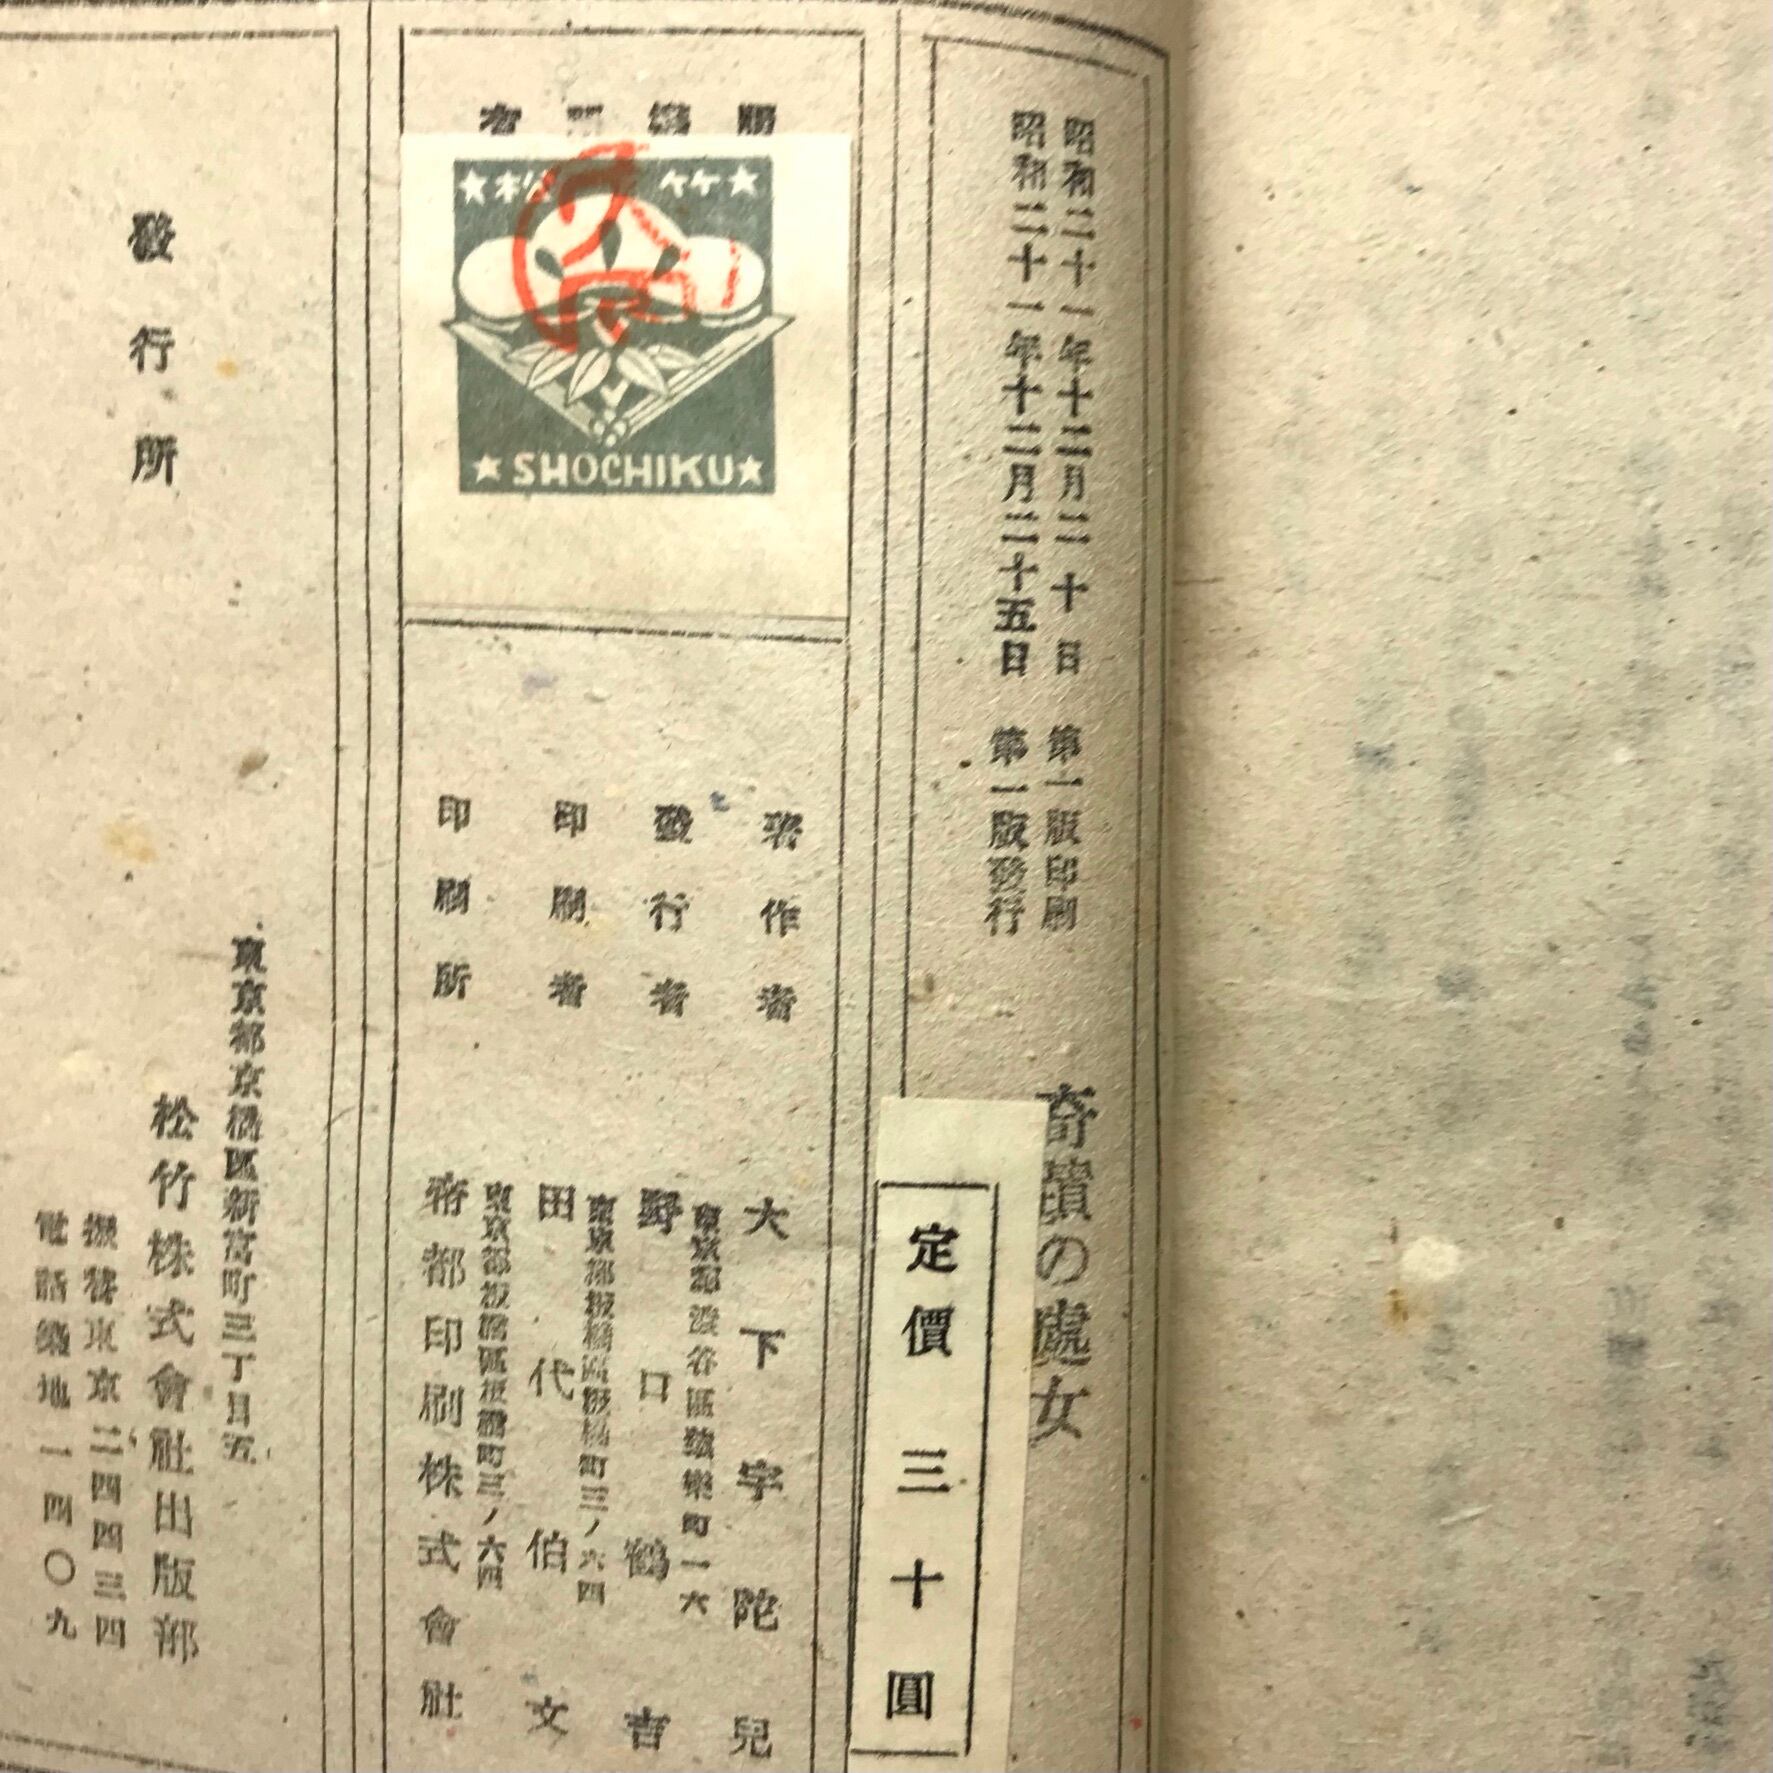 昭和二十一年十二月二十日 第一版印刷
昭和二十一年十二月二十五日 第一版發行
奇蹟の處女
定價 三十圓
★松竹★
★SHOCHIKU★
著作者 大下宇陀兒
發行者 野口鶴吉
東京都板橋區板橋町三ノ六四
印刷者 田代伯文
東京都板橋區板橋町三ノ六四
印刷所 帝都印刷株式會社
東京都京橋區新富町三丁目五
發行所 松竹株式會社出版部
振替東京二四四三四
電話築地一四〇九